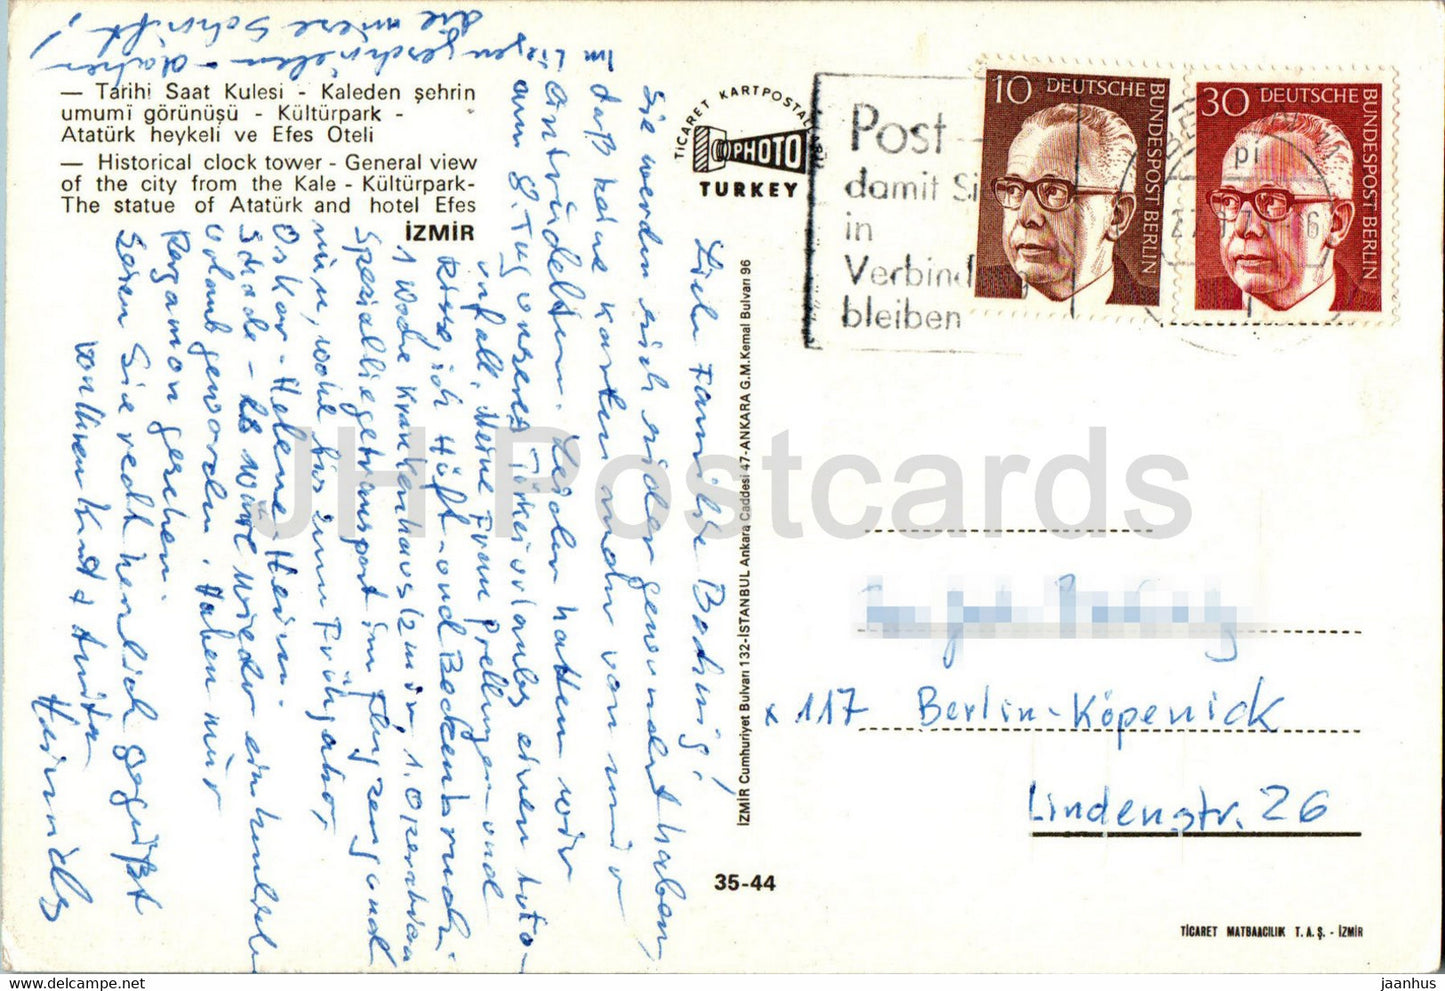 — Tarihi Saat Kulesi - Kaleden şehrin
umumî görünüşü - Kültürpark -
Atatürk heykeli ve Efes Oteli
— Historical clock tower - General view
of the city from the Kale - Kültürpark-
The statue of Atatürk and hotel Efes
İZMİR
TİCARET KARTPOSTALLARI
PHOTO
TURKEY
İZMİR Cumhuriyet Bulvarı 132-İSTANBUL Ankara Caddesi 47-ANKARA G.M.Kemal Bulvarı 96
35-44
TİCARET MATBAACILIK T. A. Ş. - İZMİR
Post -
damit Si
in
Verbind
bleiben
10 DEUTSCHE
BUNDESPOST BERLIN
30 DEUTSCHE
BUNDESPOST BERLIN
pi
Liebe Familie
Sie werden sich sicher gewundert haben,
daß keine Karten mehr von mir
eintrudelten. Leider hatten wir
am 8. Tag unseres Türkeiurlaubs einen Auto-
unfall. Meine Frau Prellungen und
Risse, ich Hüft- und Beckenbruch.
1 Woche Krankenhaus Izmir 1. Operation
Spezialliegetransport im Flugzeug und
nun, wohl bis zum Frühjahr,
Oskar-Helene-Heim.
Schade - es wäre wieder ein
Urlaub geworden. Haben nur
Pergamon gesehen.
Seien Sie recht herzlich gegrüßt
von Ihren Kurt + Anita
Im Liegen geschrieben - daher
die miese Schrift!
x 117 Berlin-Köpenick
Lindenstr. 26
JH Postcards
jaanhus - https://www.jaanhus.com